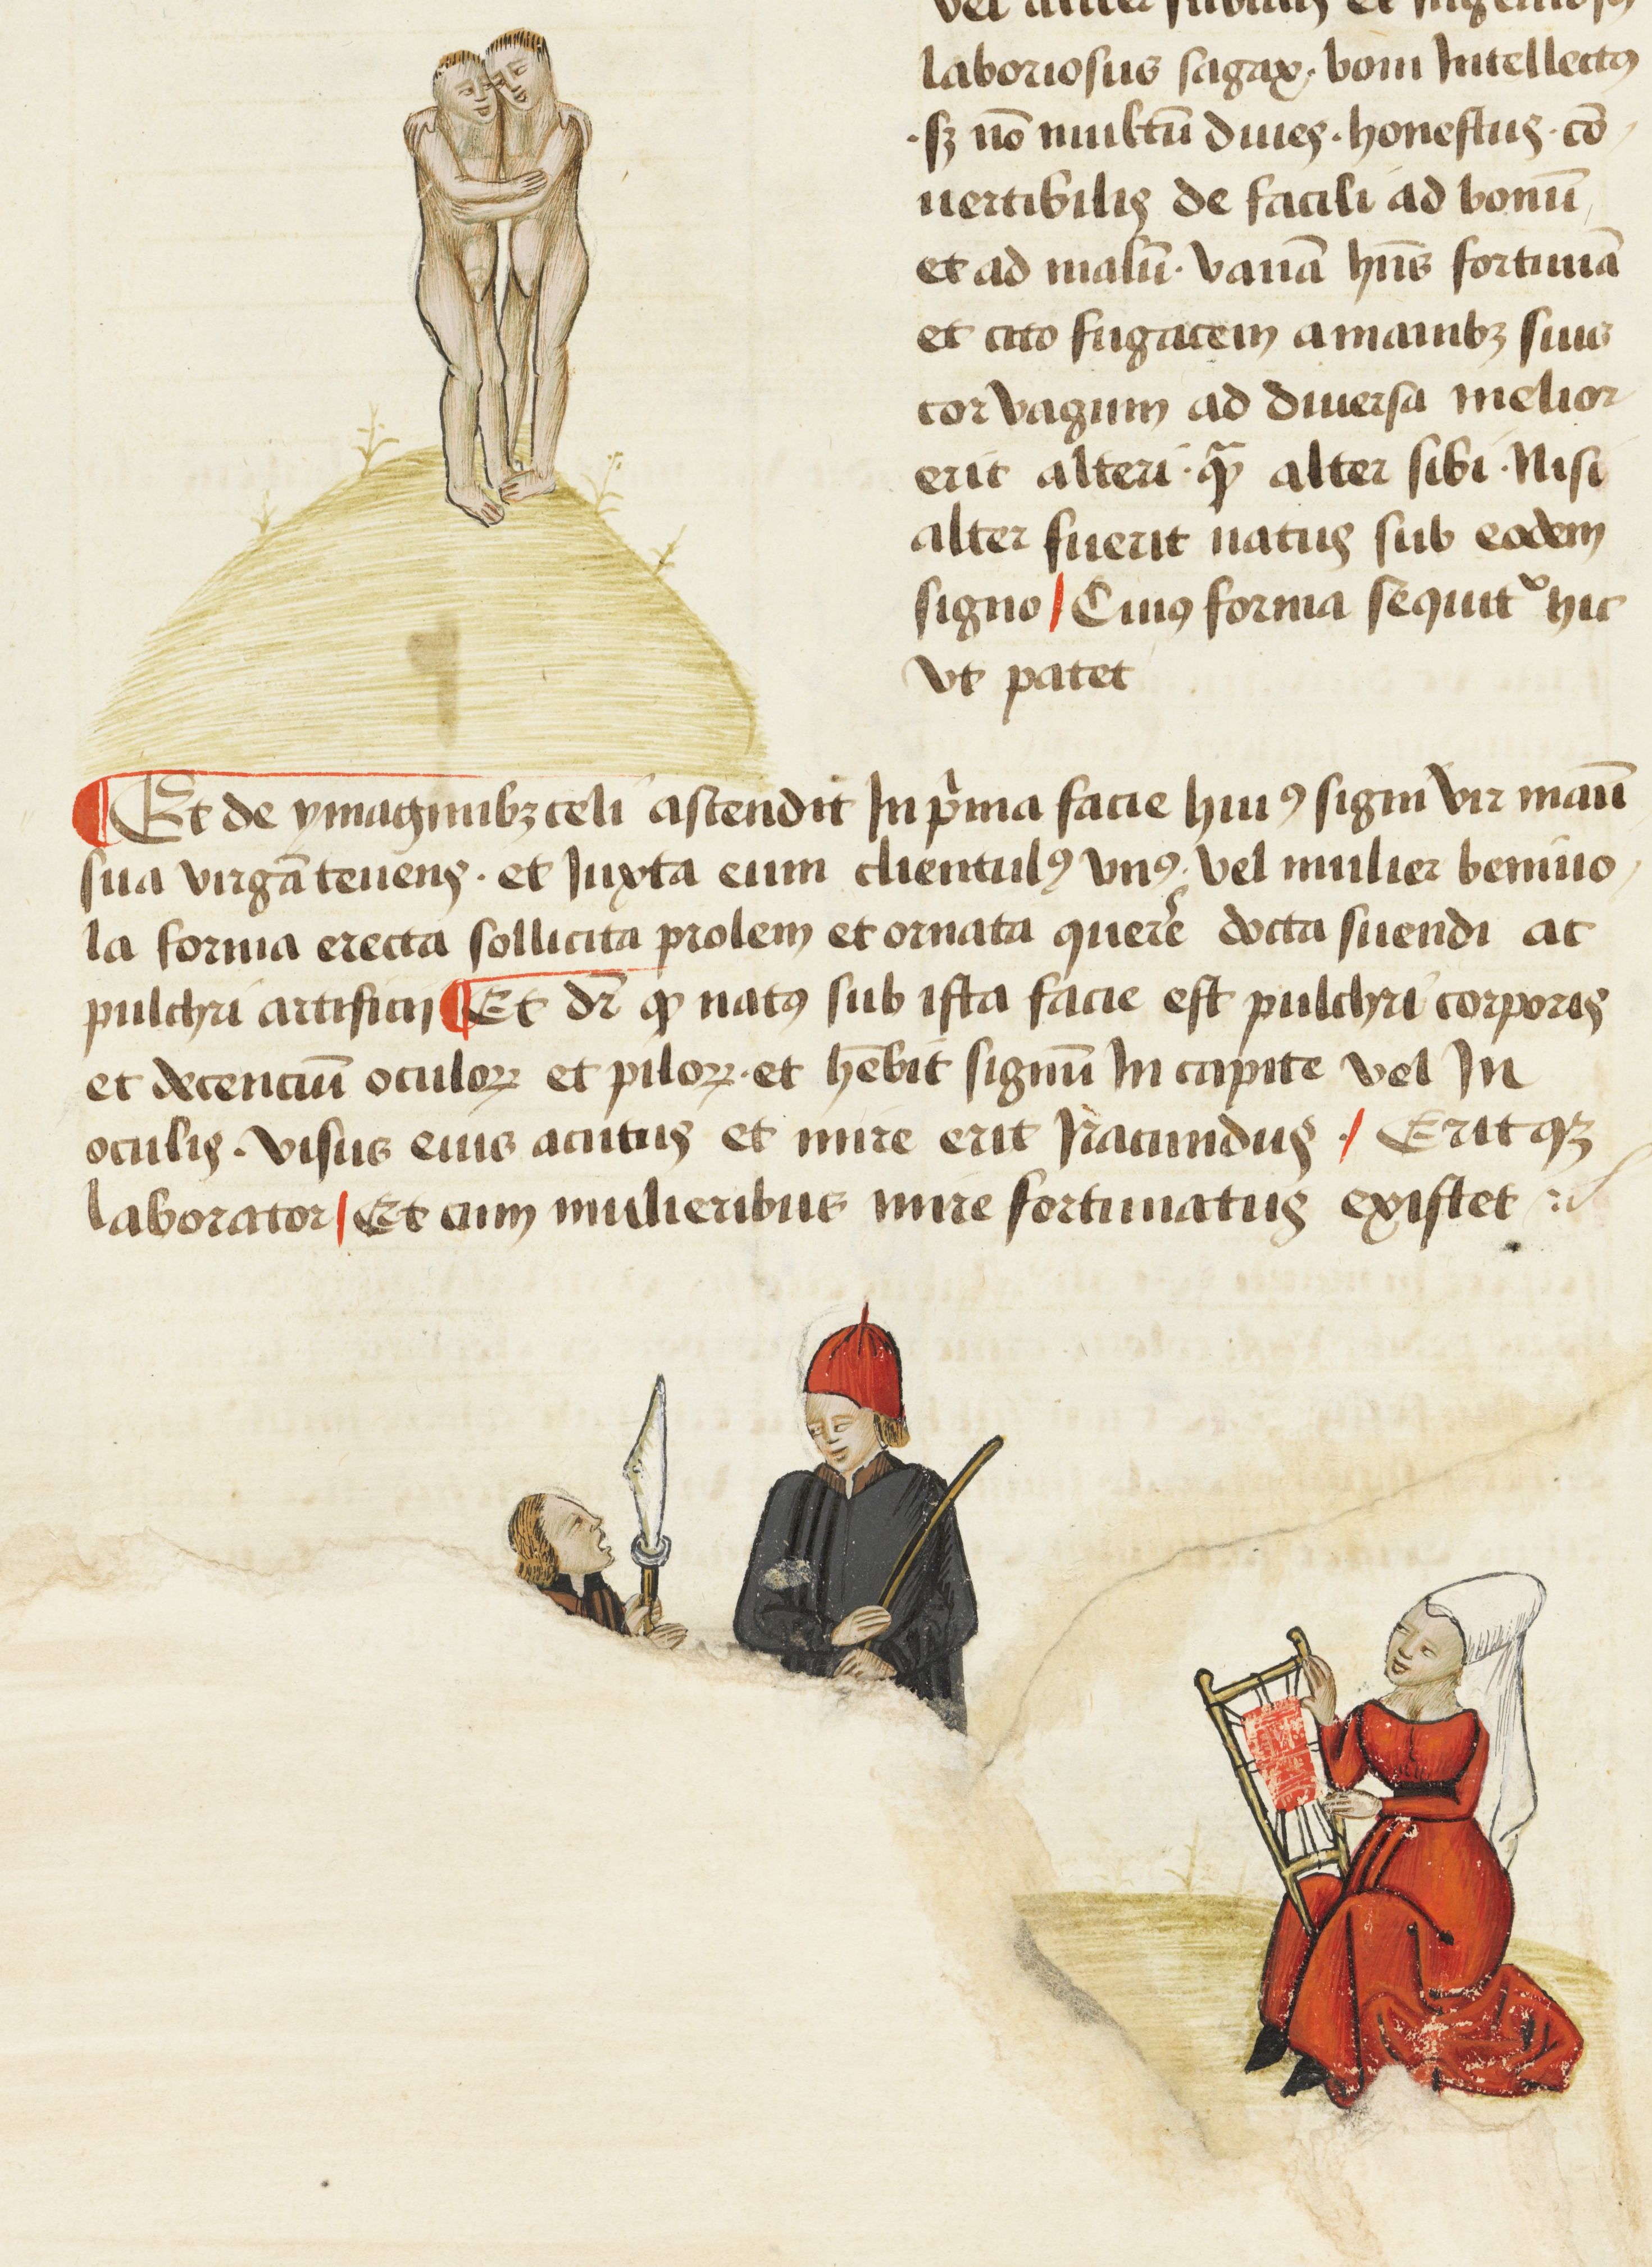 vel aliter subtilis et ingeniosus
laboriosus sagax. boni Intellectꝯ
.sꝫ nō multū diues. honestus. cō
uertibilis de facili ad bonū
et ad malū. vanā hn̄s fortunā
et cito fugacem a manibꝫ suis
cor vagum ad diuersa melior
erit alteri. qͣꝫ alter sibi. Nisi
alter fuerit natus sub eodem
signo / Cuiꝯ forma sequit᷑ hic
vt patet
¶ Et de ymaginibꝫ celi ascendit In pͥma facie huiꝯ signi vir manū
sua virgā tenens. et Juxta eum clientulꝯ vnꝯ. vel mulier beniuo
la forma erecta sollicita prolem et ornata querere docta suendi ac
pulchri artificij ¶ Et dr̄ ꝙ natꝯ sub ista facie est pulchri corporis
et decenciū oculoꝝ et piloꝝ. et hēbit signū In capite vel In
oculis. visus eius acutus et mire erit Iracundus. / Erit qꝫ
laborator / Et cum mulieribus mire fortunatus existet